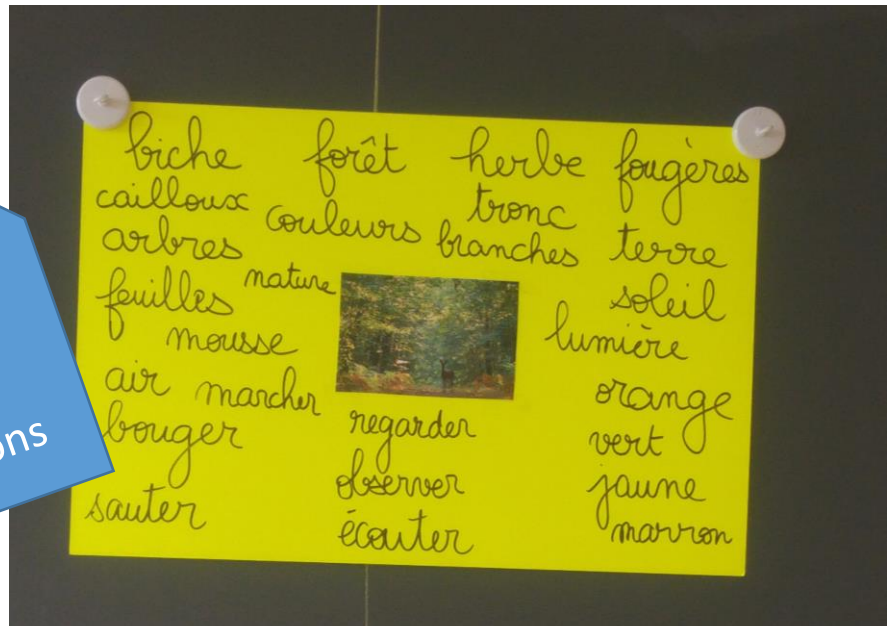 biche forêt herbe fougères
cailloux couleurs tronc
arbres branches terre
feuilles nature soleil
mousse lumière
air marcher orange
bouger regarder vert
sauter observer jaune
écouter marron